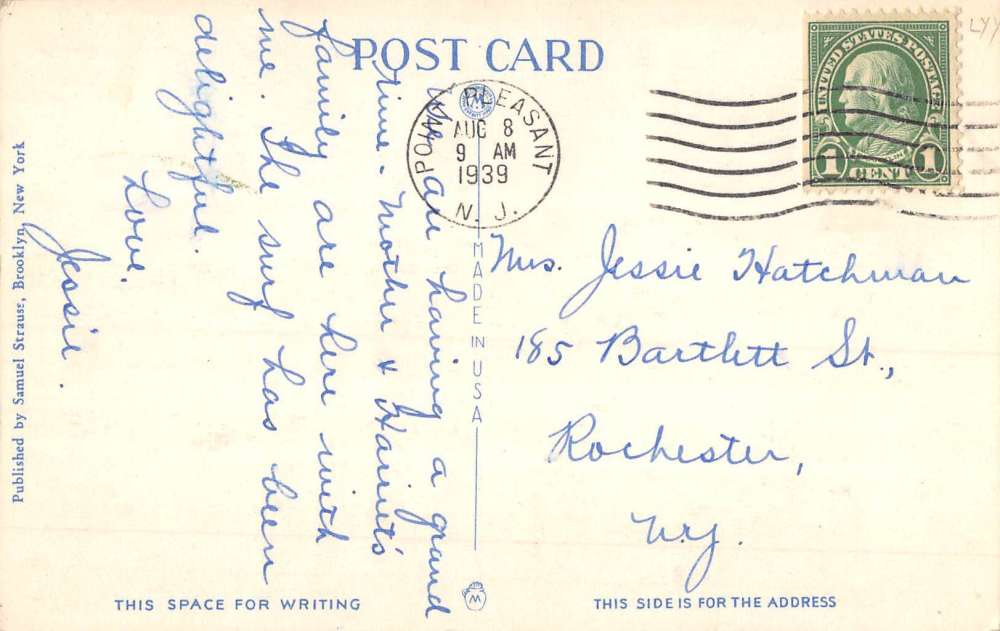 POST CARD
POINT PLEASANT
AUG 8
9 AM
1939
N. J.
UNITED STATES POSTAGE
1 CENT 1
We are having a grand
time. Mother & Harriet's
family are here with
me. The surf has been
delightful.
Love.
Jessie.
Mrs. Jessie Hatchman
185 Bartlett St.,
Rochester,
N.Y.
MADE IN USA
Published by Samuel Strauss, Brooklyn, New York
THIS SPACE FOR WRITING
M
THIS SIDE IS FOR THE ADDRESS